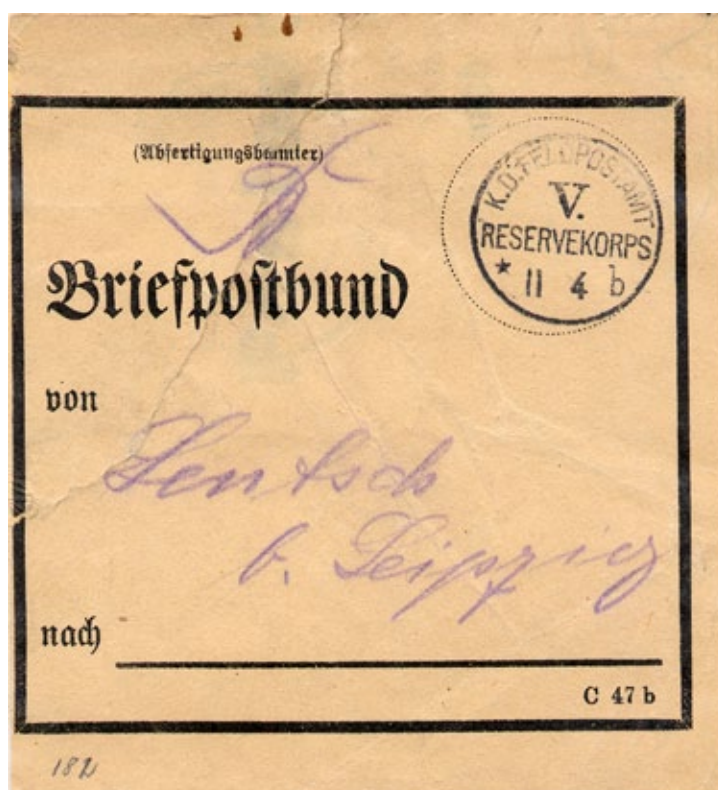 (Abfertigungsbeamter)
K.D. FELDPOSTAMT
V.
RESERVEKORPS
* 11 4 b
Briefpostbund
von
b. Leipzig
nach
C 47 b
182